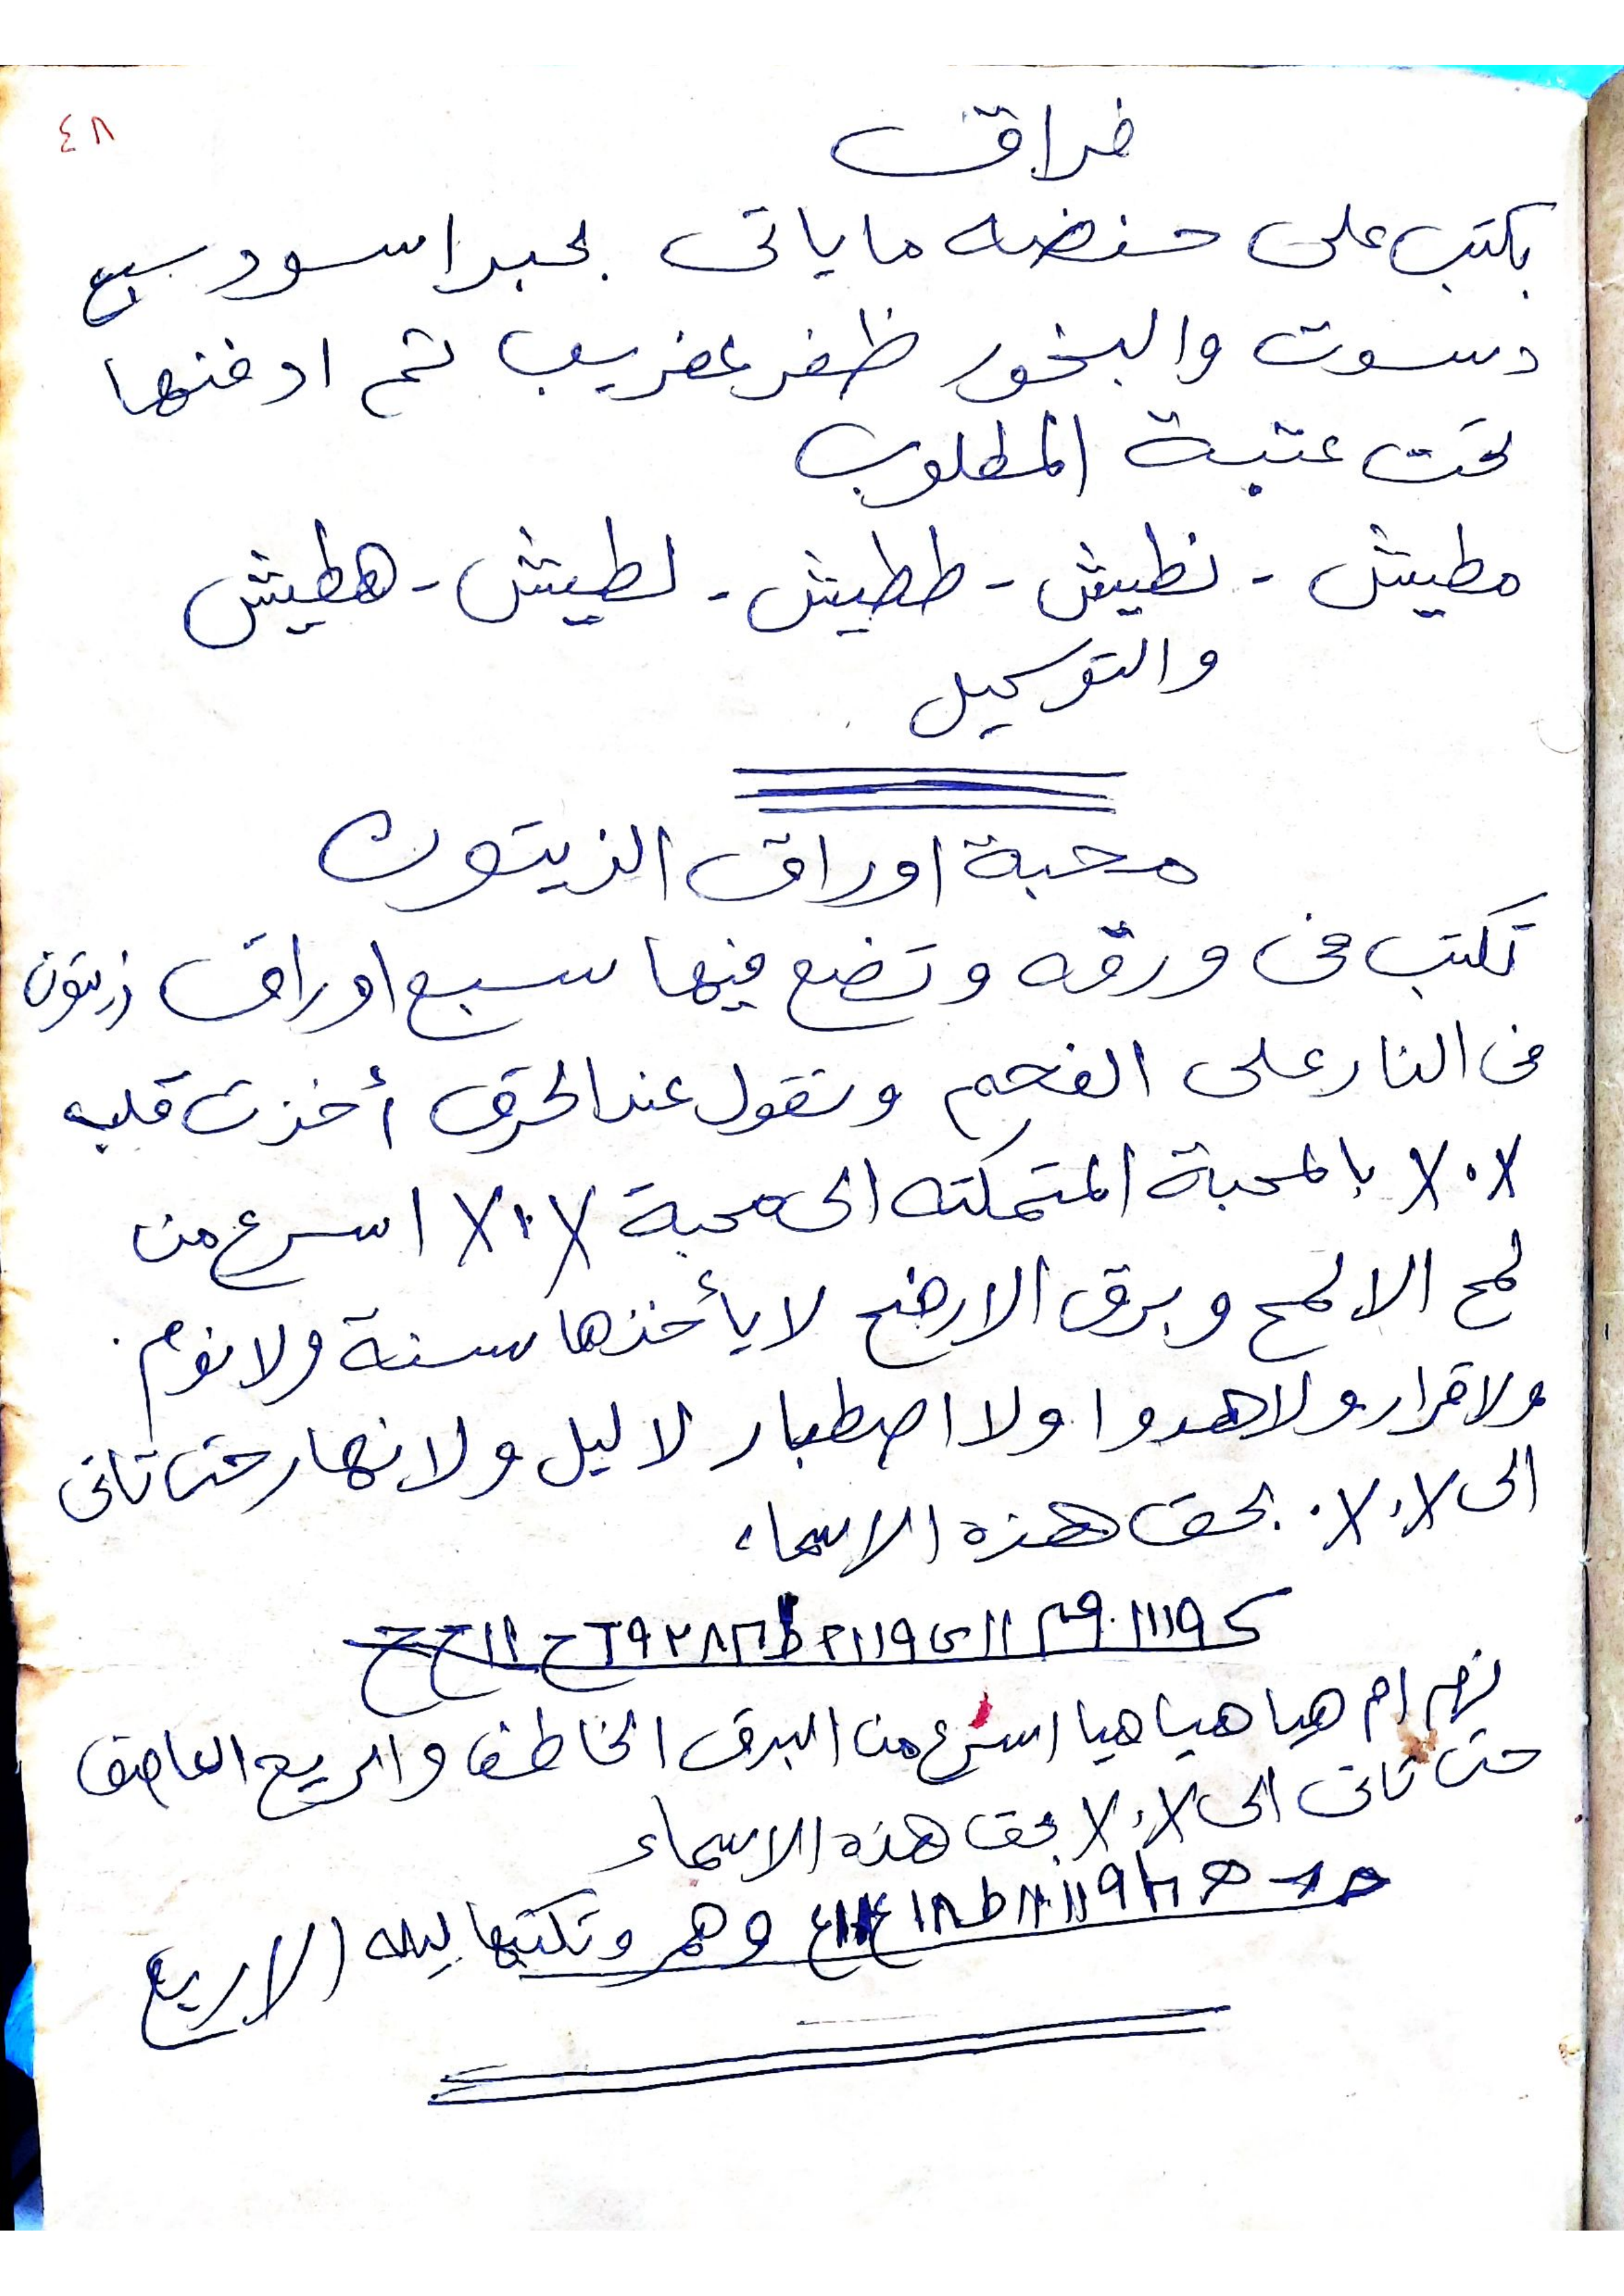 ٤٨
فراق
يكتب على حنضه ما ياتى بحبر اسود سبع
دسوت والبخور ظفر عفريب ثم ادفنها
تحت عتبة المطلوب
مطيش - نطيش - ططيش - لطيش - هطيش
والتوكيل
محبة اوراق الزيتون
تكتب فى ورقه وتضع فيها سبع اوراق زيتون
فى النار على الفحم وتقول عند الحرق أخذت قلب
بالمحبة المتمكنه الى محبة اسرع من
لمح الالمح وبرق الارضح لا يأخذها سنة ولا نوم
ولا قرار ولا هدوا ولا اصطبار لا ليل ولا نهار حتى تاتى
الى بحق هذه الاسماء
ام هيا هيا هيا اسرع من البرق الخاطف والريح العاصف
حتى تاتى الى بحق هذه الاسماء
وتكتبها ليله الاربع